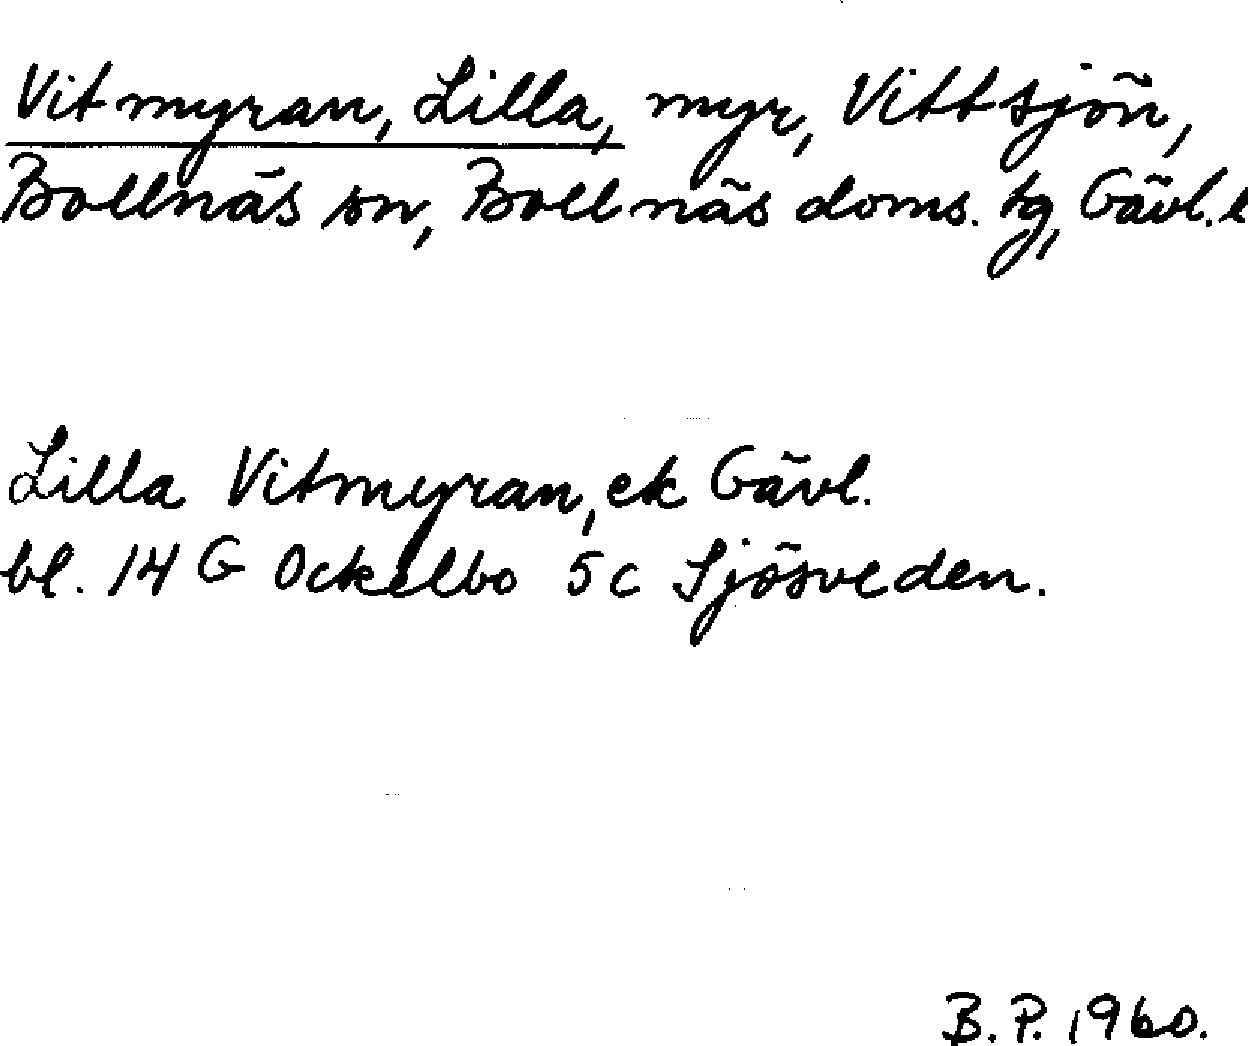 Vitmyran, Lilla, myr, Vittsjön,
Bollnäs sn, Bollnäs doms. tg, Gävl. l
Lilla Vitmyran, ek Gävl.
bl. 14 G Ockelbo 5c Sjösveden.
B. P. 1960.